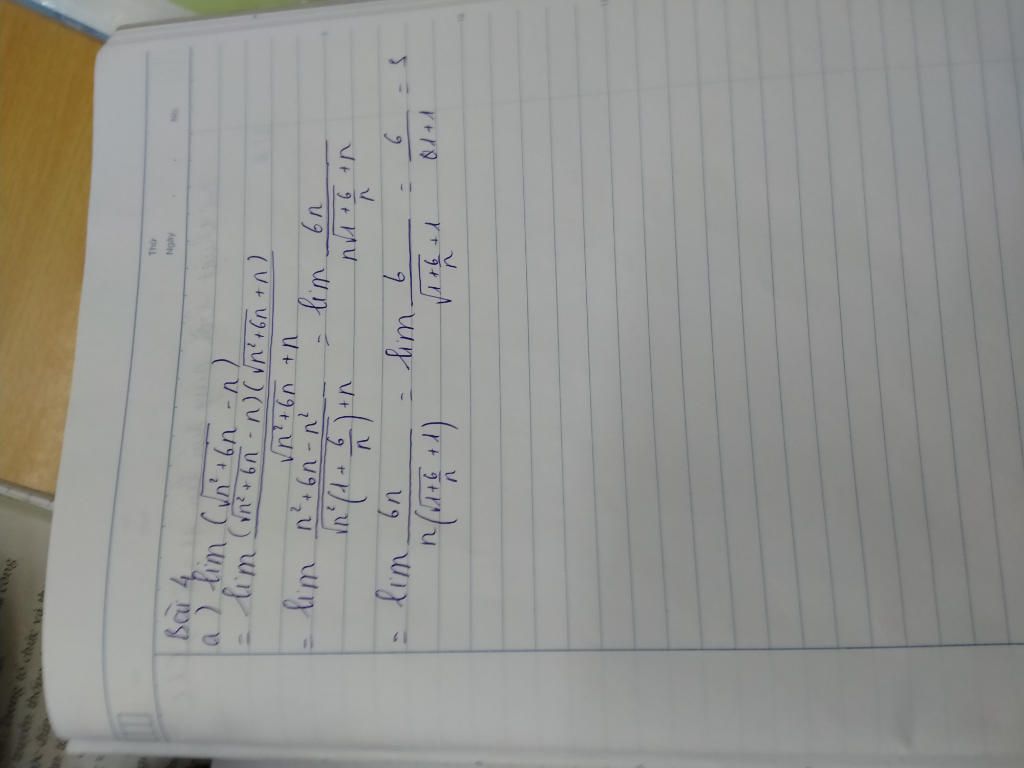 Thứ
Ngày
No.
Bài 4
a) lim (√(n²+6n) - n)
= lim (√(n²+6n) - n)(√(n²+6n) + n) / (√(n²+6n) + n)
= lim (n²+6n-n²) / (√(n²(1+6/n)) + n) = lim 6n / (n√(1+6/n) + n)
= lim 6n / (n(√(1+6/n) + 1)) = lim 6 / (√(1+6/n) + 1) = 6 / (1+1) = 3